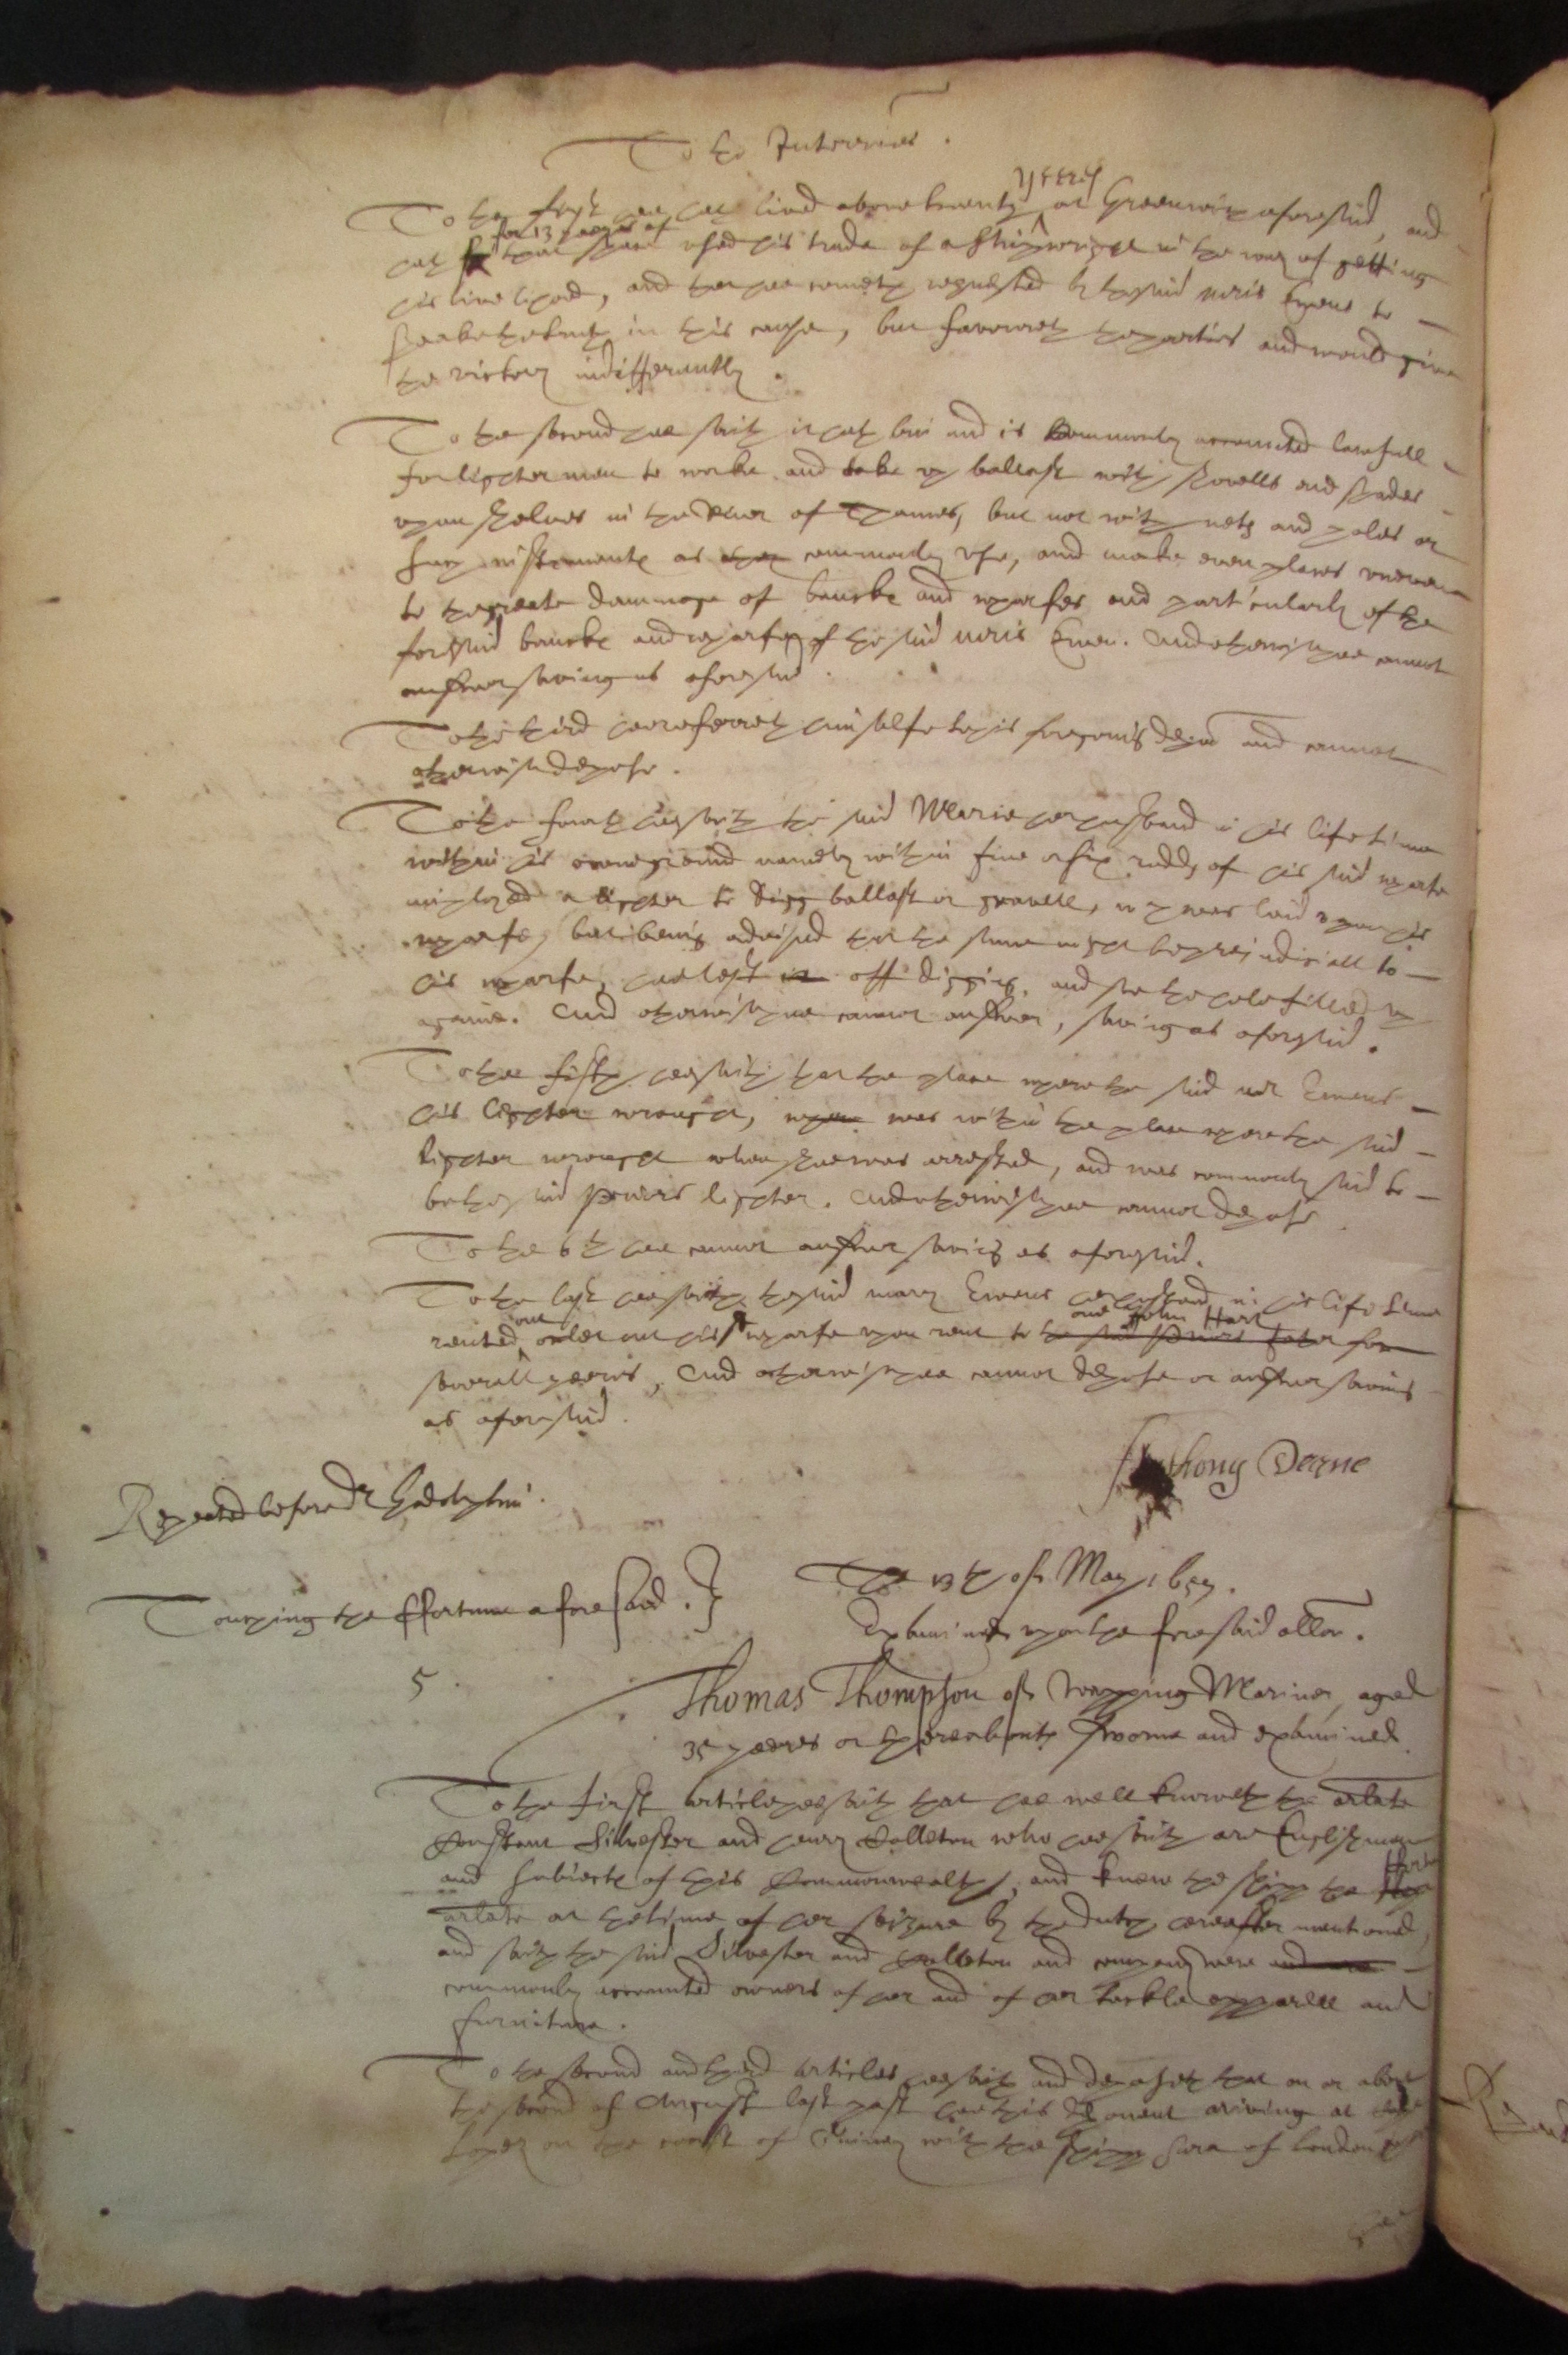 To the Interries.
To the first hee hath lived above twenty yeeres at Greenwich aforesaid, and
hath for 13 yeeres of that space used his trade of a Shipwright in the way of getting
his livelihood, and that hee cometh requested by the said Marie Ewens to
speake the truth in this cause, but favoureth the parties and would give
the victory indifferently.
To the second hee saith it hath bin and is commonly accounted lawfull
for lightermen to worke and take up ballast with shovells and spades
upon shelves in the River of Thames, but not with nets and poles or
such instruments as they commonly use, and make even places uneven
to the greate dammage of bancks and wharfes and particularly of the
foresaid bancke and wharfe of the said Marie Ewen. And otherwise hee cannot
answer saving as aforesaid.
To the third hee referreth himselfe to his foregoing deposition and cannot
otherwise depose.
To the fourth hee saith the said Marie her husband in his life time
within his owne ground namely within five or six rodds of his said wharfe
imployed a lighter to digg ballast or gravell, which was laid upon his
wharfe, but being advised that the same might be prejudiciall to
his wharfe, hee left off digging, and soe the hole filled up
againe. And otherwise hee cannot answer, saving as aforesaid.
To the fifth hee saith that the place where the said mr Ewens
his lighter wrought, was within the place where the said
lighter wrought when shee was arrested, and was commonly said to
be the said Powers lighter. And otherwise hee cannot depose
To the 6th hee cannot answer saving as aforesaid.
To the last hee saith the said Mary Ewens her husband in his life time
rented out or let out his wharfe upon rent to one John Hart for
severall yeeres, And otherwise hee cannot depose or answer saving
as aforesaid.
Anthony Deane
Repeated before dr Godolphin.
The 13th of May 1657.
Touching the Ffortune aforesaid.
Examined upon the foresaid allon.
5.
Thomas Thompson of Wapping Mariner, aged
35 yeeres or thereabouts sworne and examined.
To the first article hee saith that hee well knoweth the arlate
Constant Silvester and henry Colleton who hee saith are Englishmen
and subiects of this Commonwealth, and knew the shipp the
arlate at the time of her seizure by the dutch hereafter mentioned,
and saith the said Silvester and Colleton and company were
commonly accounted owners of her and of her tackle apparell and
furniture.
To the second and third articles hee saith and deposeth that on or about
the second of August last past hee this deponent ariving at
Lopez on the coast of Guiney with the shipp Sara of London